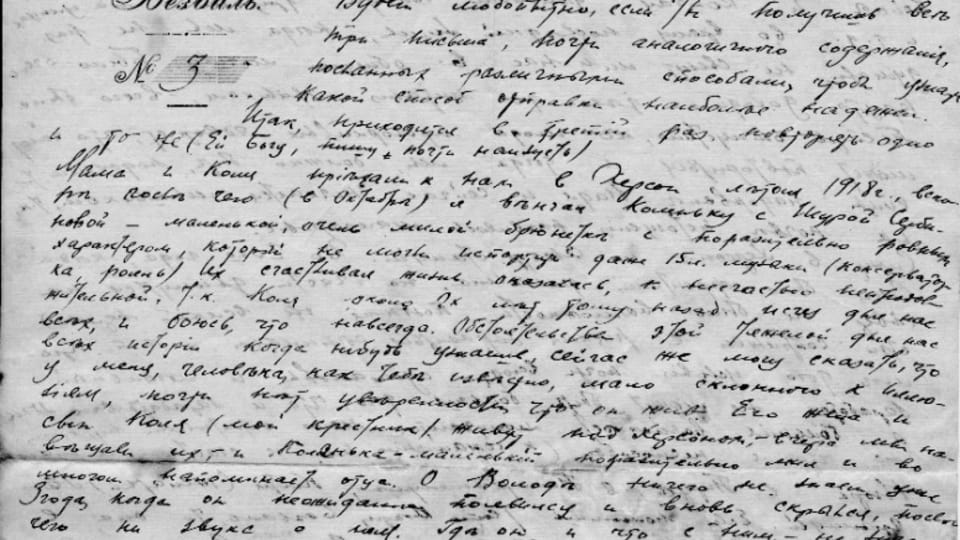 Будет любопытно, если ты получишь все
три письма, почти аналогичного содержания,
№ 3
посланных различными способами, чтоб узнать
какой способ отправки наиболее надежен.
Итак, приходится в третий раз повторять одно
и то же (Ей Богу, пишу почти наизусть)
Мама и Коля приѣхали к нам в Херсон лѣтом 1918 г.,
послѣ чего (в Октябрѣ) я вѣнчал Кольку с Шурой
новой – маленькой, очень милой брюнеткой с поразительно ровным
характером, который не могли испортить даже 15 л. музыки (консерватор-
ка, рояль) Их счастливая жизнь оказалась, к несчастью непродол-
жительной, т.к. Коля около 2х лѣт тому назад исчез для нас
всѣх, и боюсь, что навсегда. Обстоятельства этой тяжелой для нас
всѣх истории когда нибудь узнаешь, сейчас же могу сказать, что
у меня, человѣка, как тебѣ извѣстно, мало склонного к иллю-
зиям, почти нѣт увѣренности что он жив. Его жена и
сын Коля (мой крестник) живут под Херсоном,
их, и Колинька-маленький поразительно мил и во
многом напоминает отца. О Володѣ ничего не знаем уже
3 года, когда он неожиданно появился и вновь скрылся, послѣ
чего ни звука о нем. Гдѣ он и что с ним –